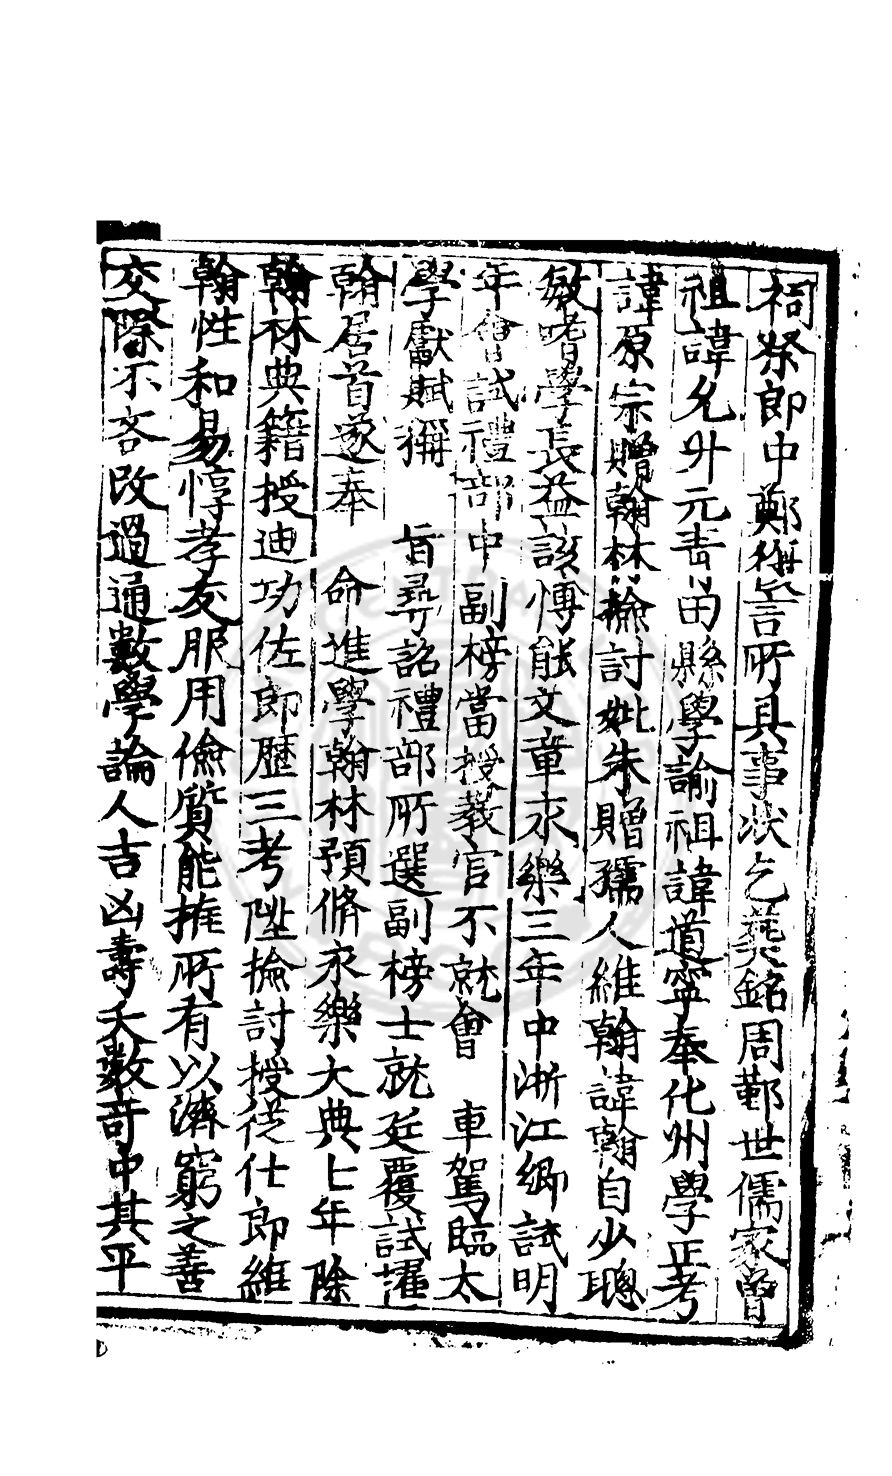 祠祭郎中鄭雍言所具事状乞𦵏銘周鄞世儒家曾
祖諱允升元青田縣學諭祖諱道寧奉化州學正考
諱原宗贈翰林檢討妣朱贈孺人維翰諱翰自少聰
敏嗜學長益該愽能文章永樂三年中浙江鄉試明
年會試禮部中副榜當授教官不就會 車駕臨太
學獻賦稱 旨尋詔禮部所選副榜士就廷覆試濯
翰居首遂奉 命進學翰林預脩永樂大典七年除
翰林典籍授迪功佐郎歷三考陞檢討授從仕郎維
翰性和易惇孝友服用儉質能推所有以濟窮之善
交際不吝改過通數學論人吉凶壽夭數竒中其平